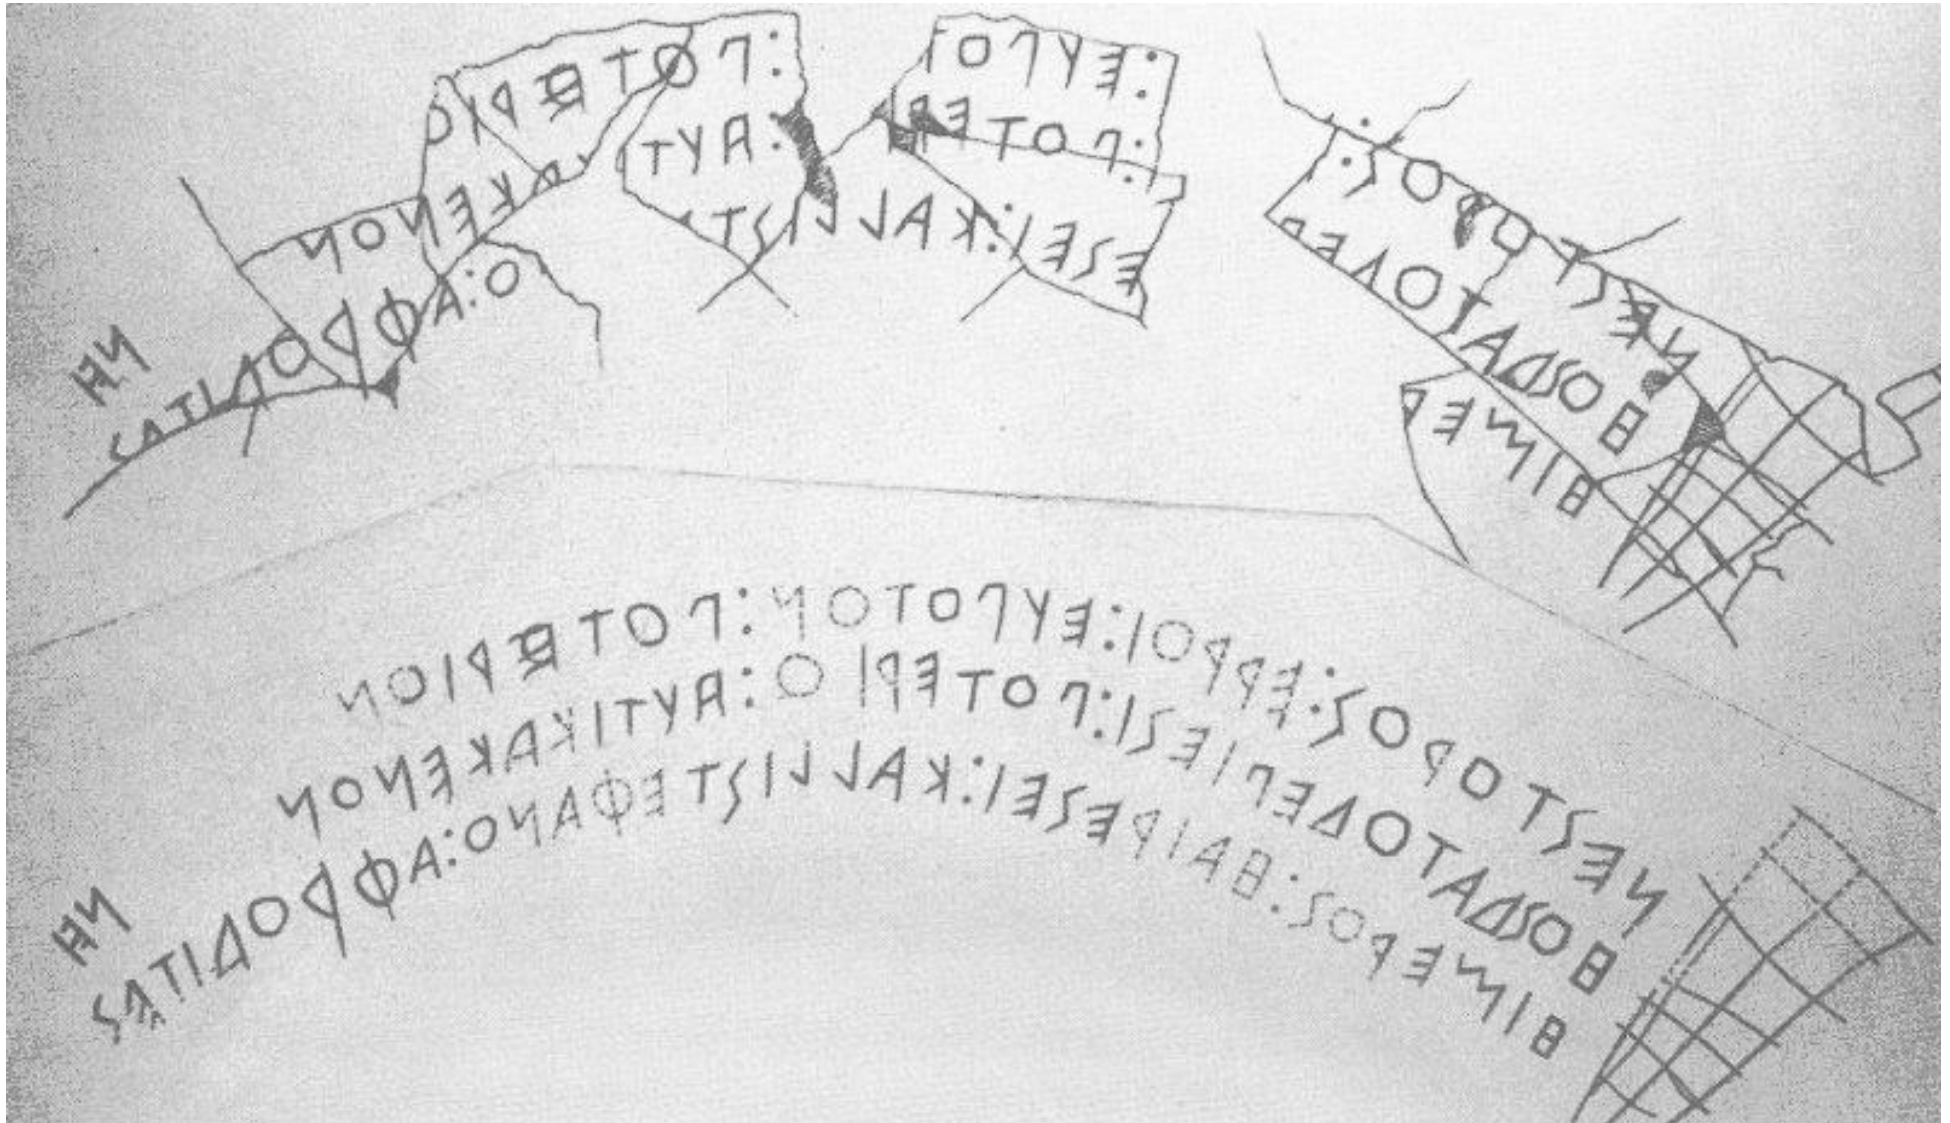 ΝΕΣΤΟΡΟΣ: :ΕΥΠΟΤ :ΠΟΤΕΡΙΟ
ΗΟΣΔΑΤΟΔΕΠ :ΠΟΤΕΡ :ΑΥΤ ΚΕΝΟΝ
ΗΙΜΕΡ ΕΣΕΙ:ΚΑΛΛΙΣΤ Ο:ΑΦΡΟΔΙΤΑΣ
ΝΗ
ΝΕΣΤΟΡΟΣ:ΕΡΡΟΙ:ΕΥΠΟΤΟΝ:ΠΟΤΕΡΙΟΝ
ΗΟΣΔΑΤΟΔΕΠΙΕΣΙ:ΠΟΤΕΡΙΟ:ΑΥΤΙΚΑΚΕΝΟΝ
ΗΙΜΕΡΟΣ:ΗΑΙΡΕΣΕΙ:ΚΑΛΛΙΣΤΕΦΑΝΟ:ΑΦΡΟΔΙΤΑΣ
ΝΗ